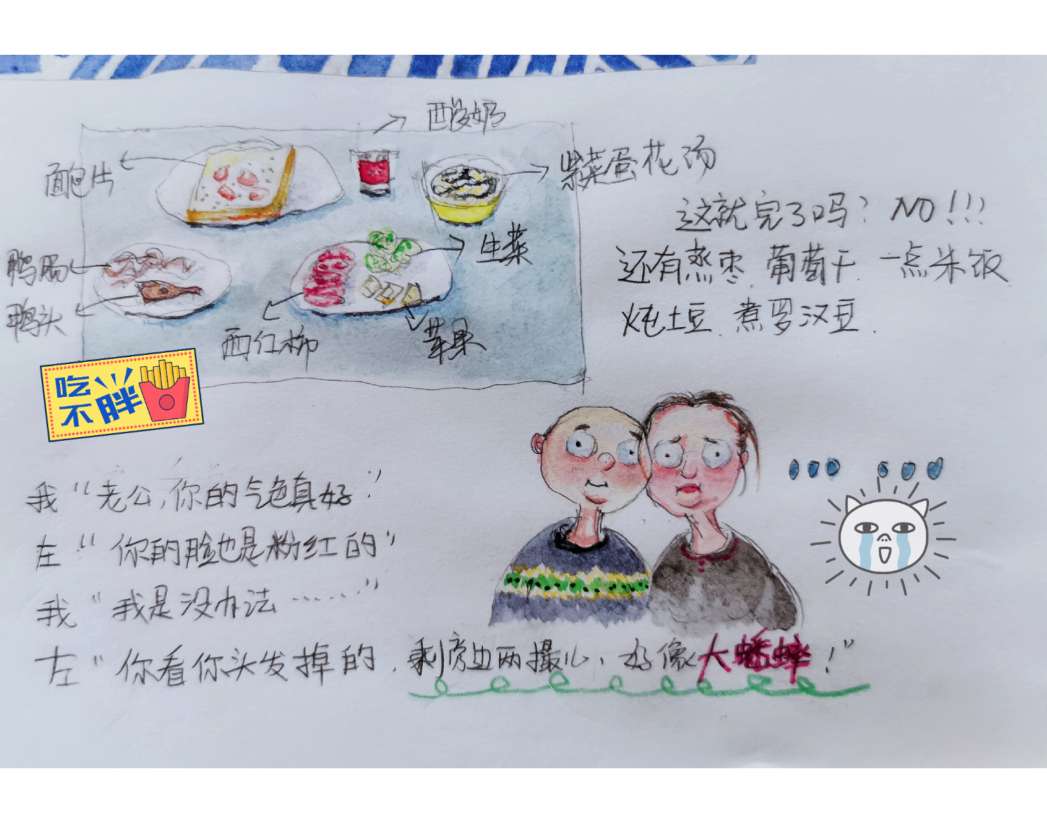 酸奶
面包片
紫菜蛋花汤
生菜
鸭肠
鸭头
西红柿
苹果
这就完了吗？NO!!!
还有蒸枣.葡萄干.一点米饭
炖土豆.煮罗汉豆.
吃
不胖
我“老公,你的气色真好”
左“你的脸也是粉红的”
我“我是没办法……”
左“你看你头发掉的.剩旁边两撮儿、好像大蟋蟀！”